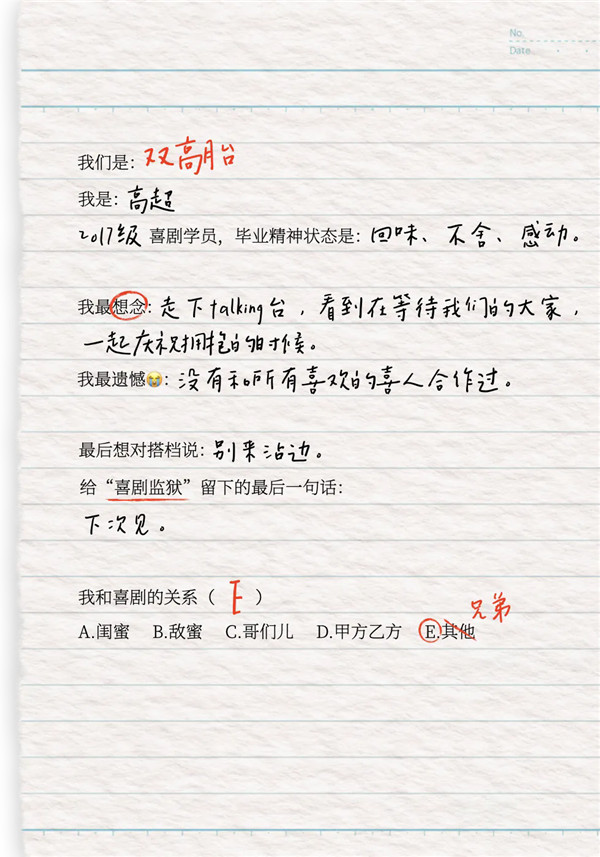 No.
Date
我们是：双高胎
我是：高超
2017级 喜剧学员，毕业精神状态是：回味、不舍、感动。
我最想念：走下talking台，看到在等待我们的大家，
一起庆祝拥抱的时候。
我最遗憾😭：没有和所有喜欢的喜人合作过。
最后想对搭档说：别来沾边。
给“喜剧监狱”留下的最后一句话：
下次见。
我和喜剧的关系（ E ）
兄弟
A.闺蜜 B.敌蜜 C.哥们儿 D.甲方乙方 E.其他